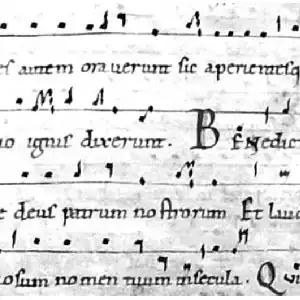 es autem oraverunt sic aperientesq
o ignis dixerunt. BEnedic
e deus patrum nostrorum Et lau
osum nomen tuum insecula. Qui